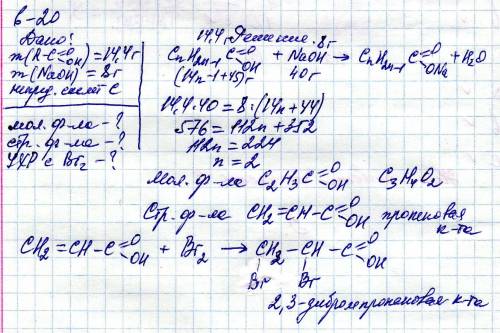 в-20
Дано:
m(R-C=O OH) = 14,4г
m(NaOH) = 8г
непред. склет C
мол. ф-ла - ?
стр. ф-ла - ?
УХР с Br2 - ?
Решение.
14,4г 8г
CnH2n-1 C=O OH + NaOH → CnH2n-1 C=O ONa + H2O
(14n-1+45)г 40г
14,4·40 = 8·(14n+44)
576 = 112n + 352
112n = 224
n = 2
Мол. ф-ла C2H3C=O OH C3H4O2
Стр. ф-ла CH2=CH-C=O OH пропеновая
к-та
CH2=CH-C=O OH + Br2 → CH2-CH-C=O OH
Br Br
2,3-дибромпропановая к-та